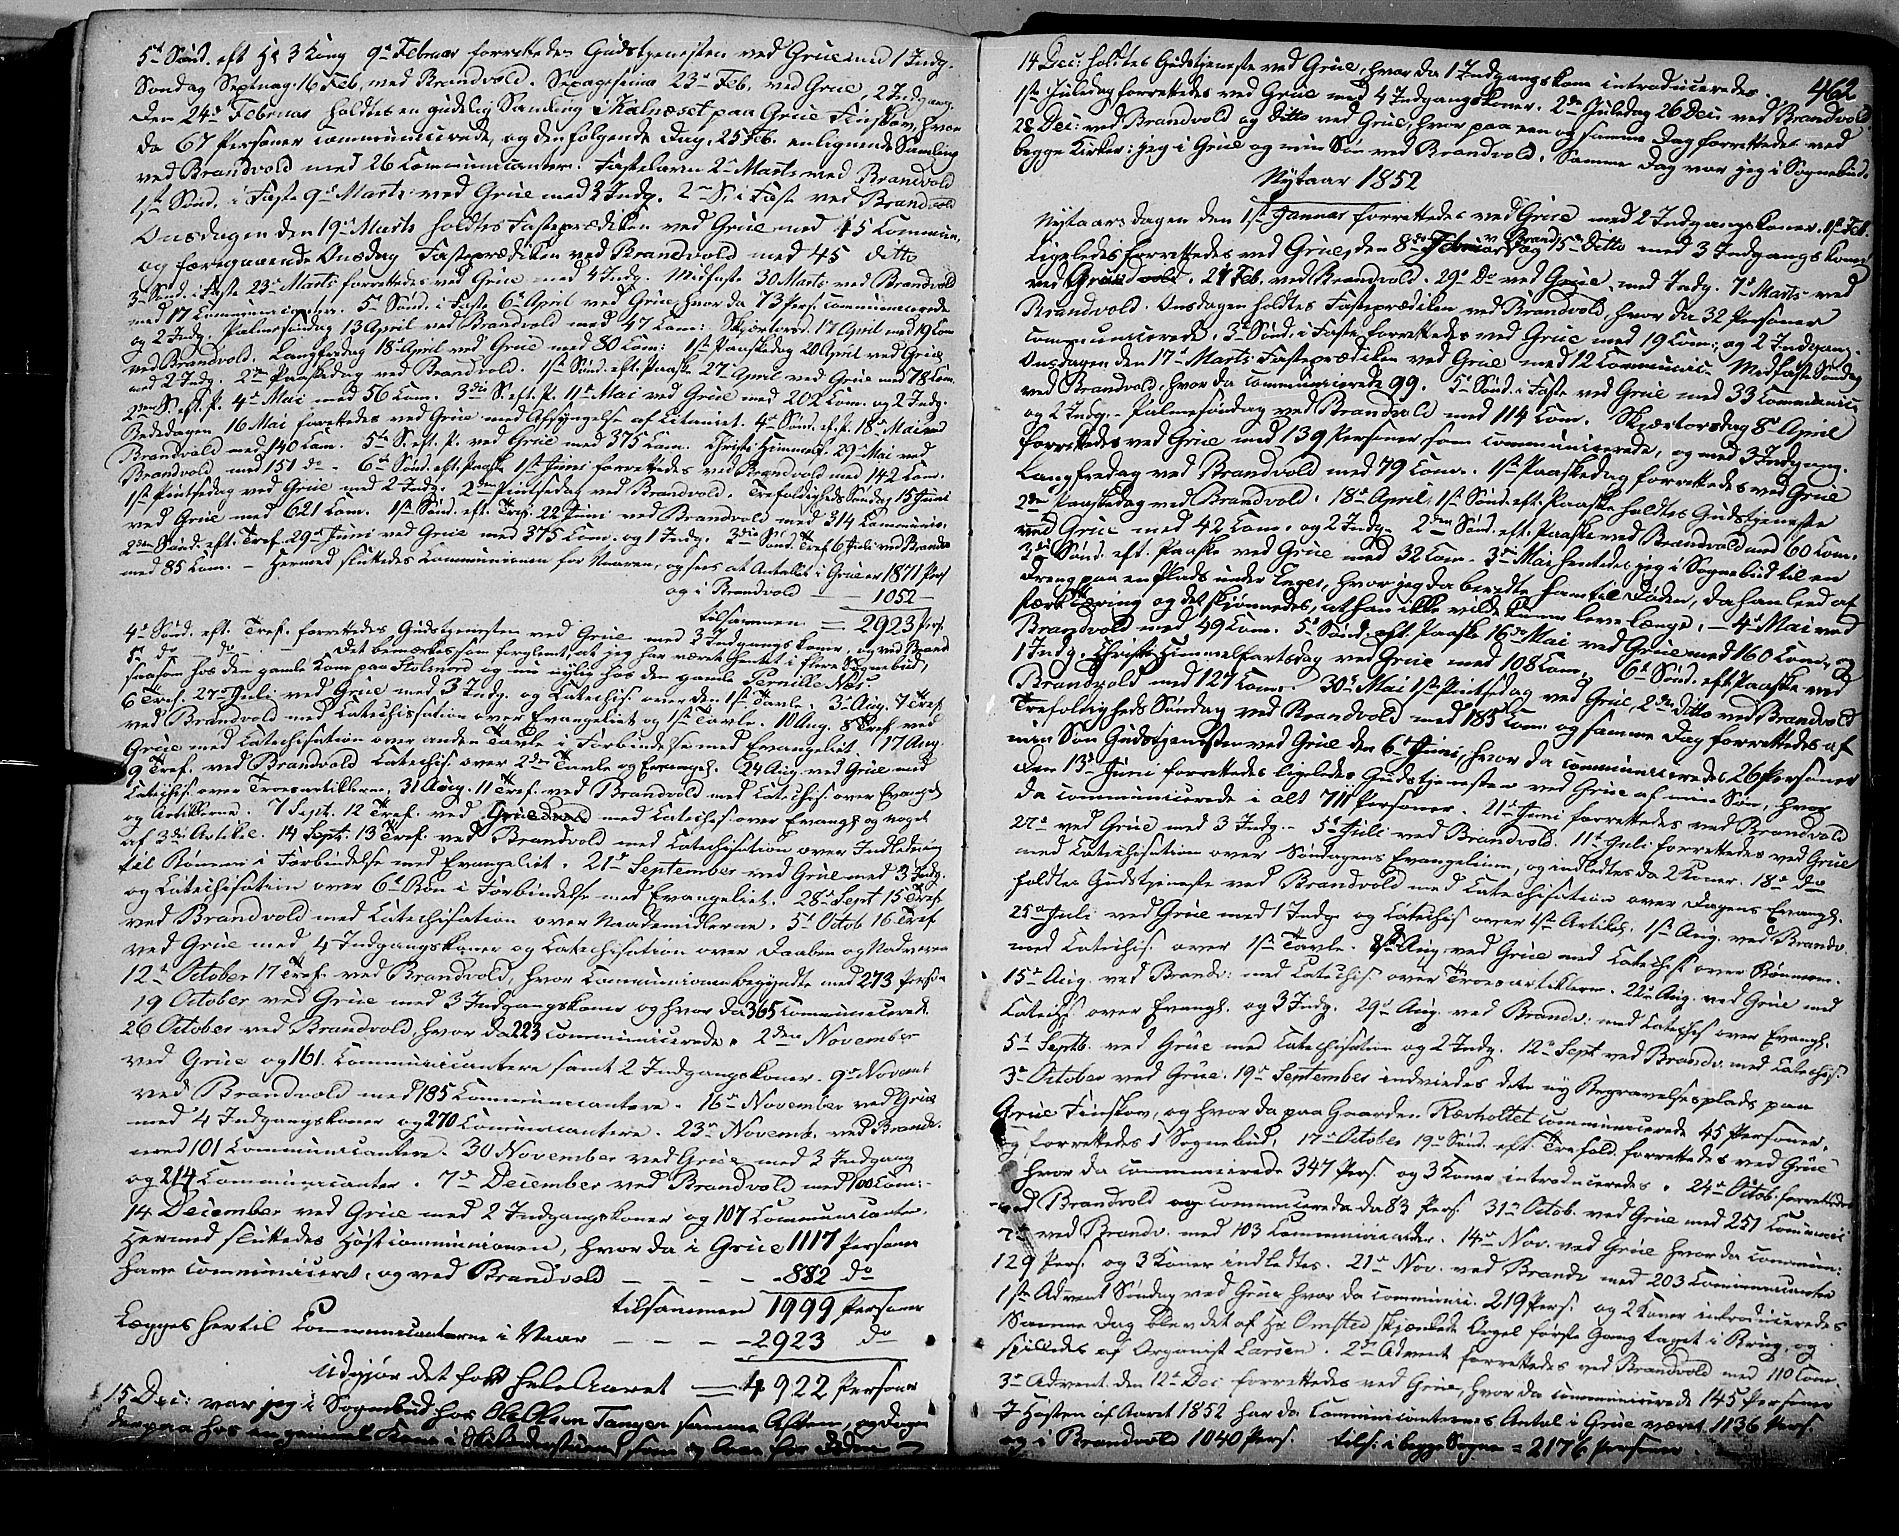 5te Sønd. eft. H. 3 Kong. 9de Februar forrettedes Gudstjenesten ved Grue med 1 Indg.
Søndag Septuag. 16 Feb. ved Brandvold. Sexagesima 23de Feb. ved Grue, 2 Indgang.
Den 24de Februar holdtes en gudelig Samling i Kalnæset paa Grue Finskov, hvor
da 67 Personer communicerede, og den følgende Dag, 25 Feb. en lignende Samling
ved Brandvold med 26 Communicanter. Fastelavn 2den Marts ved Brandvold
1ste Sønd. i Faste 9de Marts ved Grue med 2 Indg. 2den S. i Faste ved Brandvold
Onsdagen den 19de Marts holdtes Fasteprædiken ved Grue med 15 Commun.
og foregaaende Onsdag Fasteprædiken ved Brandvold med 45 ditto
3die Sønd. i Faste 23de Marts forrettedes ved Grue med 4 Indg. Midfaste 30 Marts ved Brandvold
med 17 Communicanter. 5te Sønd. i Faste 6te April ved Grue, hvor da 73 Pers. communicerede
og 2 Indg. Palmesøndag 13 April ved Brandvold med 47 Com: Skjærtorsd. 17 April med 19 Com
ved Brandvold. Langfredag 18de April ved Grue med 80 Com: 1ste Paaskedag 20 April ved Grue
med 2 Indg. 2den Paaskedag ved Brandvold. 1ste Sønd. eft. Paaske 27 April ved Grue med 78 Com.
2den S. eft. P. 4de Mai med 56 Com. 3die S. eft. P. 11te Mai ved Grue med 202 Com. og 2 Indg.
Bededagen 16 Mai forrettedes ved Grue med Afsyngelse af Litaniet. 4de Sønd. ef. P. 18de Mai ved
Brandvold med 140 Com. 5te S. eft. P. ved Grue med 375 Com. Christi Himmelf. 29de Mai ved
Brandvold med 151 do - 6te Sønd. eft. Paaske 1ste Juni forrettedes ved Brandvold med 142 Com.
1ste Pintsedag ved Grue med 2 Indg. 2den Pintsedag ved Brandvold. Trefoldigheds Søndag 15 Juni
ved Grue med 621 Com. 1ste Sønd. eft. Tref. 22 Juni ved Brandvold med 314 Communic.
2den Sønd. eft. Tref. 29de Juni ved Grue med 375 Com. og 1 Indg. 3die Sønd. Tref. 6 Juli ved Brandv.
med 85 Com. - Hermed sluttedes Communionen for Vaaren, og sees at Antallet i Grue er 1871 Pers
og i Brandvold — 1052 —
tilsammen = 2923 Pers
4de Sønd. eft. Tref. forrettedes Gudstjenesten ved Grue med 3 Indgangskoner, og ved Brand
5te do - do - . Det bemærkes som forglemt, at jeg har været hentet i flere Sognebud,
saasom hos den gamle Kone paa og nu nylig hos den gamle Pernille Næs
6 Tref. 27de Juli ved Grue med 3 Indg. og Catechis. over den 1ste Tavle. 3de Aug. 7 Tref.
ved Brandvold med Catechisation over Evangeliet og 1ste Tavle. 10 Aug. 8 Tref. ved
Grue med Catechisation over anden Tavle i Forbindelse med Evangeliet. 17 Aug.
9 Tref. ved Brandvold Catechis. over 2den Tavle og Evangel. 24 Aug. ved Grue med
Catechis. over Troesartiklerne. 31 Aug. 11 Tref. ved Brandvold med Catechis. over Evangel.
og Artiklerne. 7 Sept. 12 Tref. ved Grue med Catechis. over Evangl. og noget
af 3die Artikel. 14 Sept. 13 Tref. ved Brandvold med Catechisation over Indledning
til Bønnen i Forbindelse med Evangeliet. 21de September ved Grue med 3 Indg.
og Catechisation over 6te Bøn i Forbindelse med Evangeliet. 28de Sept 15 Tref.
ved Brandvold med Catechisation over Naademidlerne. 5te Octob. 16 Tref
ved Grue med 4 Indgangskoner og Catechisation over Daaben og Nadveren
12te October 17 Tref. ved Brandvold, hvor Communionen begyndte med 273 Person
19 October ved Grue med 3 Indgangskoner og hvor da 365 Communicerede
26 October ved Brandvold, hvor da 223 communicerede. 2den November
ved Grue og 161. Communicantere samt 2 Indgangskoner. 9de Novemb
ved Brandvold med 185 Communicantere. 16de November ved Grue
med 4 Indgangskoner og 270 Communicantere. 23de Novemb. ved Brandv.
med 101 Communicantere. 30 November ved Grue med 3 Indgang
og 214 Communicanter. 7de December ved Brandvold med 100 Com:-
14 December ved Grue med 2 Indgangskoner og 107 Communicanter.
Hermed sluttedes Høstcommunionen, hvor da i Grue 1117 Personer
have communiceret, og ved Brandvold — — — — 882 do
tilsammen 1999 Personer
Lægges hertil Communicanterne i Vaar — — — 2923 do
Udgjør det for hele Aaret = 4922 Personer
15 Dec: var jeg i Sognebud hos Ole Olsen Tangen samme Aften, og dagen
derpaa hos en gammel Kone i som og laae for Døden
462
14 Dec: holdtes Gudstjeneste ved Grue, hvor da 1 Indgangskone introduceredes.
1ste Juledag forrettedes ved Grue med 4 Indgangskoner. 2den Juledag 26 Dec: ved Brandvold.
28 Dec: ved Brandvold og ditto ved Grue, hvor paa een og samme Dag forrettedes ved
begge Kirker: jeg i Grue og min Søn ved Brandvold. Samme Dag var jeg i Sognebud.
Nytaar 1852
Nytaarsdagen den 1ste Januar forrettedes ved Grue med 2 Indgangskoner. 1ste Feb.
ligeledes forrettedes ved Grue, den 8de Februar v. Brand. 15de ditto med 3 Indgangskoner
ved Grue. 21 Feb. ved Brandvold. 29de Do ved Grue med Indg. 7de Marts ved
Brandvold. Onsdagen holdtes Fasteprædiken ved Brandvold, hvor da 32 Personer
communicerede. 3die Sønd. i Faste forrettedes ved Grue med 19 Com: og 2 Indgan.
Onsdagen den 17de Marts Fasteprædiken ved Grue med 12 Communic. Midfaste Søndag
ved Brandvold, hvor da communicerede 99. 5te Sønd. i Faste ved Grue med 33 Communic:
og 2 Indg. - Palmesøndag ved Brandvold med 114 Com. Skjærtorsdag 8de April
forrettedes ved Grue med 139 Personer som communicerede, og med 3 Indgang.
Langfredag ved Brandvold med 79 Com. 1ste Paaskedag forrettedes ved Grue
2den Paaskedag ved Brandvold. 18de April, 1ste Sønd. eft. Paaske holdtes Gudstjeneste
ved Grue med 42 Com. og 2 Indg. 2den Sønd. eft. Paaske ved Brandvold med 60 Com.
3die Sønd. eft. Paaske ved Grue med 32 Com. 3die Mai hentedes jeg i Sognebud til en
Dreng paa en Plads under Enger, hvor jeg da beredte ham til Døden, da han leed af
stærk Tæring og det skjønnedes, at han ikke vilde kunne leve længe. - 4de Mai ved
Brandvold med 49 Com. 5te Sønd. eft. Paaske 16de Mai ved Grue med 160 Com. og
1 Indg. Christi Himmelfartsdag ved Grue med 108 Com. 6te Sønd. eft. Paaske ved
Brandvold med 127 Com. 30te Mai 1ste Pintsedag ved Grue, 2den ditto ved Brandvold
Trefoldigheds Søndag ved Brandvold med 185 Com. og samme Dag forrettedes af
min Søn Gudstjenesten ved Grue den 6te Juni, hvor da communicerede 26 Personer
den 13de Juni forrettedes ligeledes Gudstjenesten ved Grue af min Søn, hvor
da communicerede i alt 711 Personer 21de Juni forrettedes ved Brandvold
27de ved Grue med 3 Indg. - 5te Juli ved Brandvold. 11te Juli forrettedes ved Grue
med Catechisation over Søndagens Evangelium, og indledtes da 2 Koner. 18de do
holdtes Gudstjeneste ved Brandvold med Catechisation over Dagens Evangl.
25de Juli ved Grue med 1 Indg. og Catechis. over 1ste Artikel. 1ste Aug. ved Brandv.
med Catechis. over 1ste Tavle. 8de Aug. ved Grue med Catechis. over Bønnen.
15de Aug. ved Brandv: med Catechis. over Troesartiklerne. 22de Aug. ved Grue med
Catechs. over Evangl. og 3 Indg. 29de Aug. ved Brandv: med Catechis. over Evangl.
5te Septb. ved Grue med Catechisation og 2 Indg. 12te Sept ved Brandv. med Catechis.
3die October ved Grue. 19de September indviedes dete ny Begravelsesplads paa
Grue Finskov, og hvor da paa Gaarden Rævholtet communicerede 45 Personer,
og forrettedes 1 Sognebud. 17de October 19de Sønd. eft. Trefold. forrettedes ved Grue
hvor da communicerede 347 Pers. og 3 Koner introduceredes. 24de Octob. forrettedes
ved Brandvold og communicerede da 83 Pers. 31te Octob. ved Grue med 251 Communic.
7de ved Brandv. med 103 Communicanter. 14de Nov. ved Grue hvor da commun:
129 Pers. og 3 Koner indledtes. 21de Nov. ved Brandv. med 203 Communicanter
1ste Advent Søndag ved Grue hvor da communic. 219 Pers: og 2 Koner introduceredes
Samme Dag blev det af Hr. Omsted skjænkede Orgel første Gang taget i Brug, og
spilledes af Organist Larsen. 2den Advent forrettedes ved Brandvold med 110 Com.
3die Advent den 12te Dec forrettedes ved Grue, hvor da communicerede 145 Personer
I Høsten af Aaret 1852 har da Communicanternes Antal i Grue været 1136 Pers.
og i Brandvold 1040 Pers. tils: i begge Sogne = 2176 Personer.